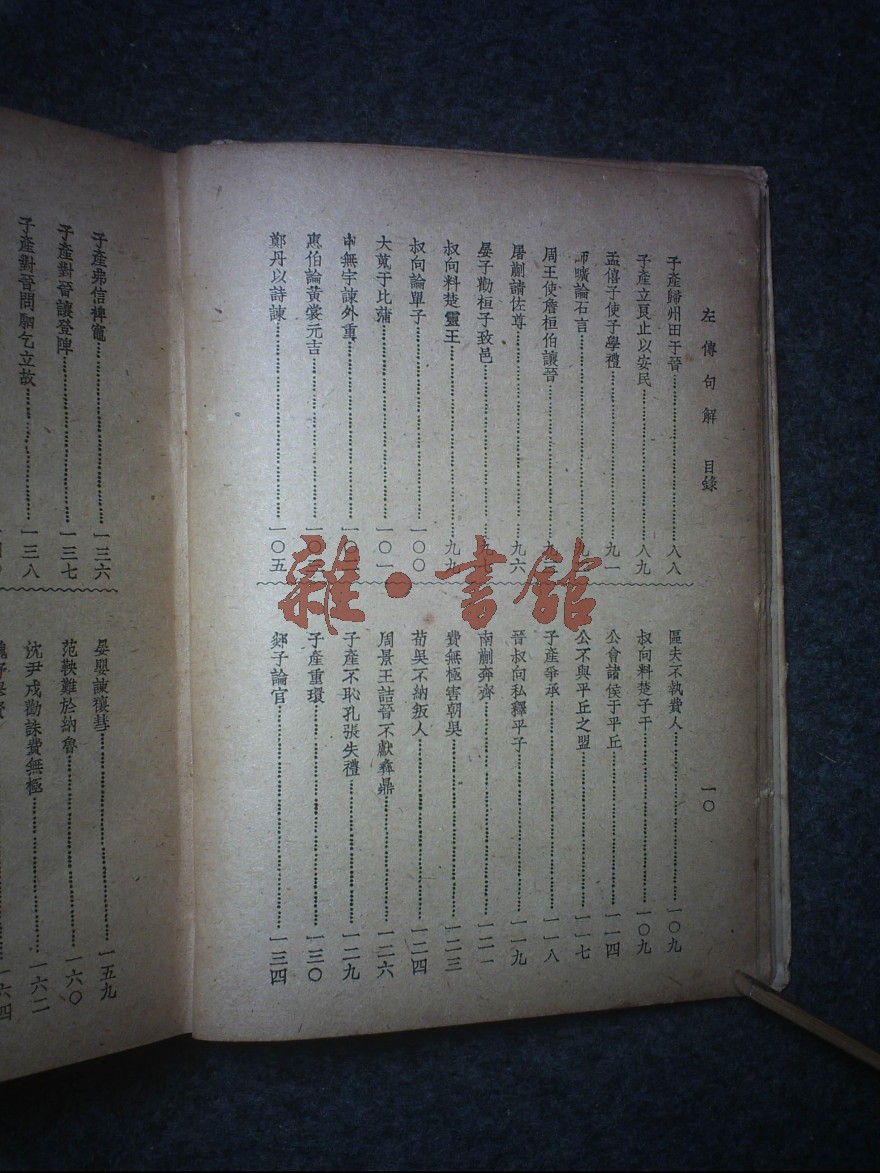 左傳句解 目錄 一〇
子產歸州田于晉 八八
子產立良止以安民 八九
孟僖子使子學禮 九一
師曠論石言
周王使詹桓伯讓晉
屠蒯請佐尊 九六
晏子勸桓子致邑 九七
叔向料楚靈王 九九
叔向論單子 一〇〇
大蒐于比蒲 一〇一
申無宇諫外重
惠伯論黃裳元吉
鄭丹以詩諫 一〇五
區夫不執費人 一〇九
叔向料楚子干 一〇九
公會諸侯于平丘 一一四
公不與平丘之盟 一一七
子產爭承 一一八
晉叔向私釋平子 一一九
南蒯奔齊 一二一
費無極害朝吳 一二三
荀吳不納叛人 一二四
周景王詰晉不獻彝鼎 一二六
子產不恥孔張失禮 一二九
子產重環 一三〇
郯子論官 一三四
子產弗信裨竈 一三六
子產對晉讓登陴 一三七
子產對晉問駟乞立故 一三八
晏嬰諫禳彗 一五九
范鞅難於納魯 一六〇
沈尹戌勸誅費無極 一六二
一六四
雜·書館